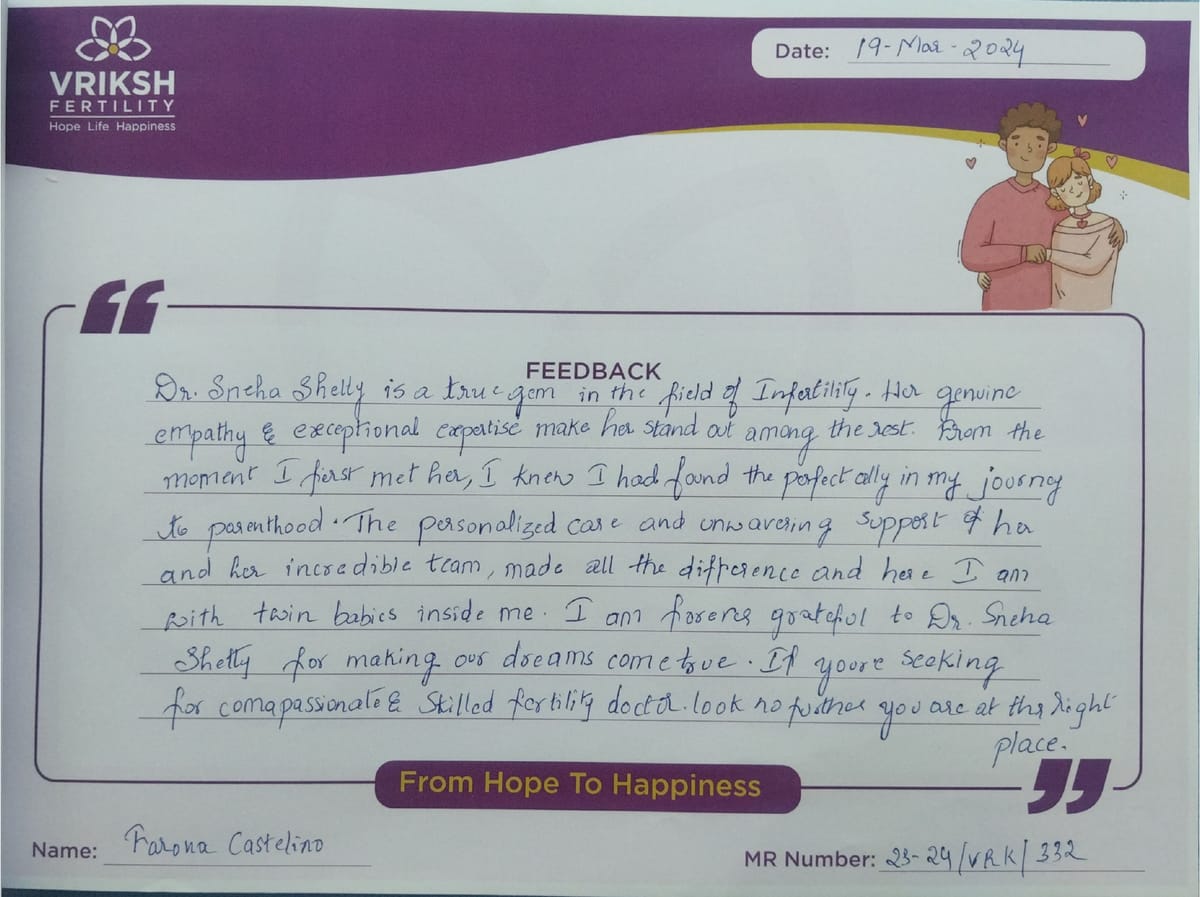 VRIKSH
FERTILITY
Hope Life Happiness
Date: 19-Mar-2024
FEEDBACK
Dr. Sneha Shetty is a true gem in the field of Infertility. Her genuine
empathy & exceptional expertise make her stand out among the rest. From the
moment I first met her, I knew I had found the perfect ally in my journey
to parenthood. The personalized care and unwavering support of her
and her incredible team, made all the difference and here I am
with twin babies inside me. I am forever grateful to Dr. Sneha
Shetty for making our dreams come true. If youre seeking
for comapassionate & Skilled fertility doctor. look no further you are at the right
place.
From Hope To Happiness
Name: Farona Castelino
MR Number: 23-24/VRK/332